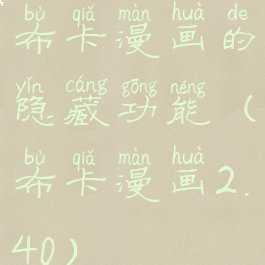 bù qiǎ màn huà de
布卡漫画的
yǐn cáng gōng néng
隐藏功能(
bù qiǎ màn huà
布卡漫画2.
40)